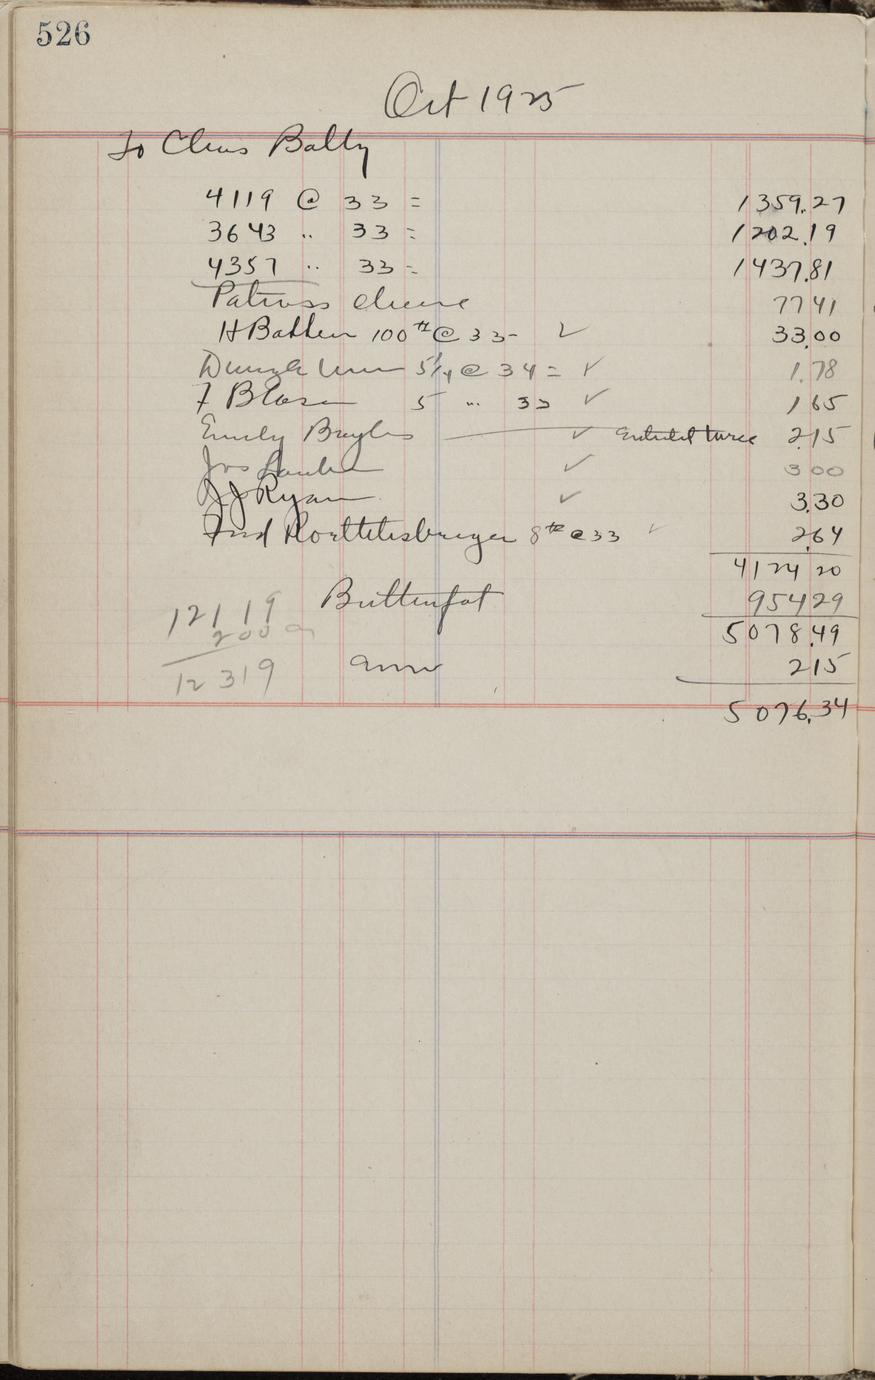 526
Oct 1925
To Chas Bally
4119 @ 33 = 1359.27
3643 " 33 = 1202.19
4357 " 33 = 1437.81
Patrons cheese 7741
H Batten 100 @ 33 - ✓ 33.00
5 1/4 @ 34 = ✓ 1.78
F 5 " 33 ✓ 165
Emily Bayles ✓ Entered twice 215
Jos ✓ 300
JJ Ryan ✓ 3.30
Fred 8 @ 33 ✓ 2.64
4124 20
12119 Butterfat 95429
200 5078.49
12319 215
5076.34